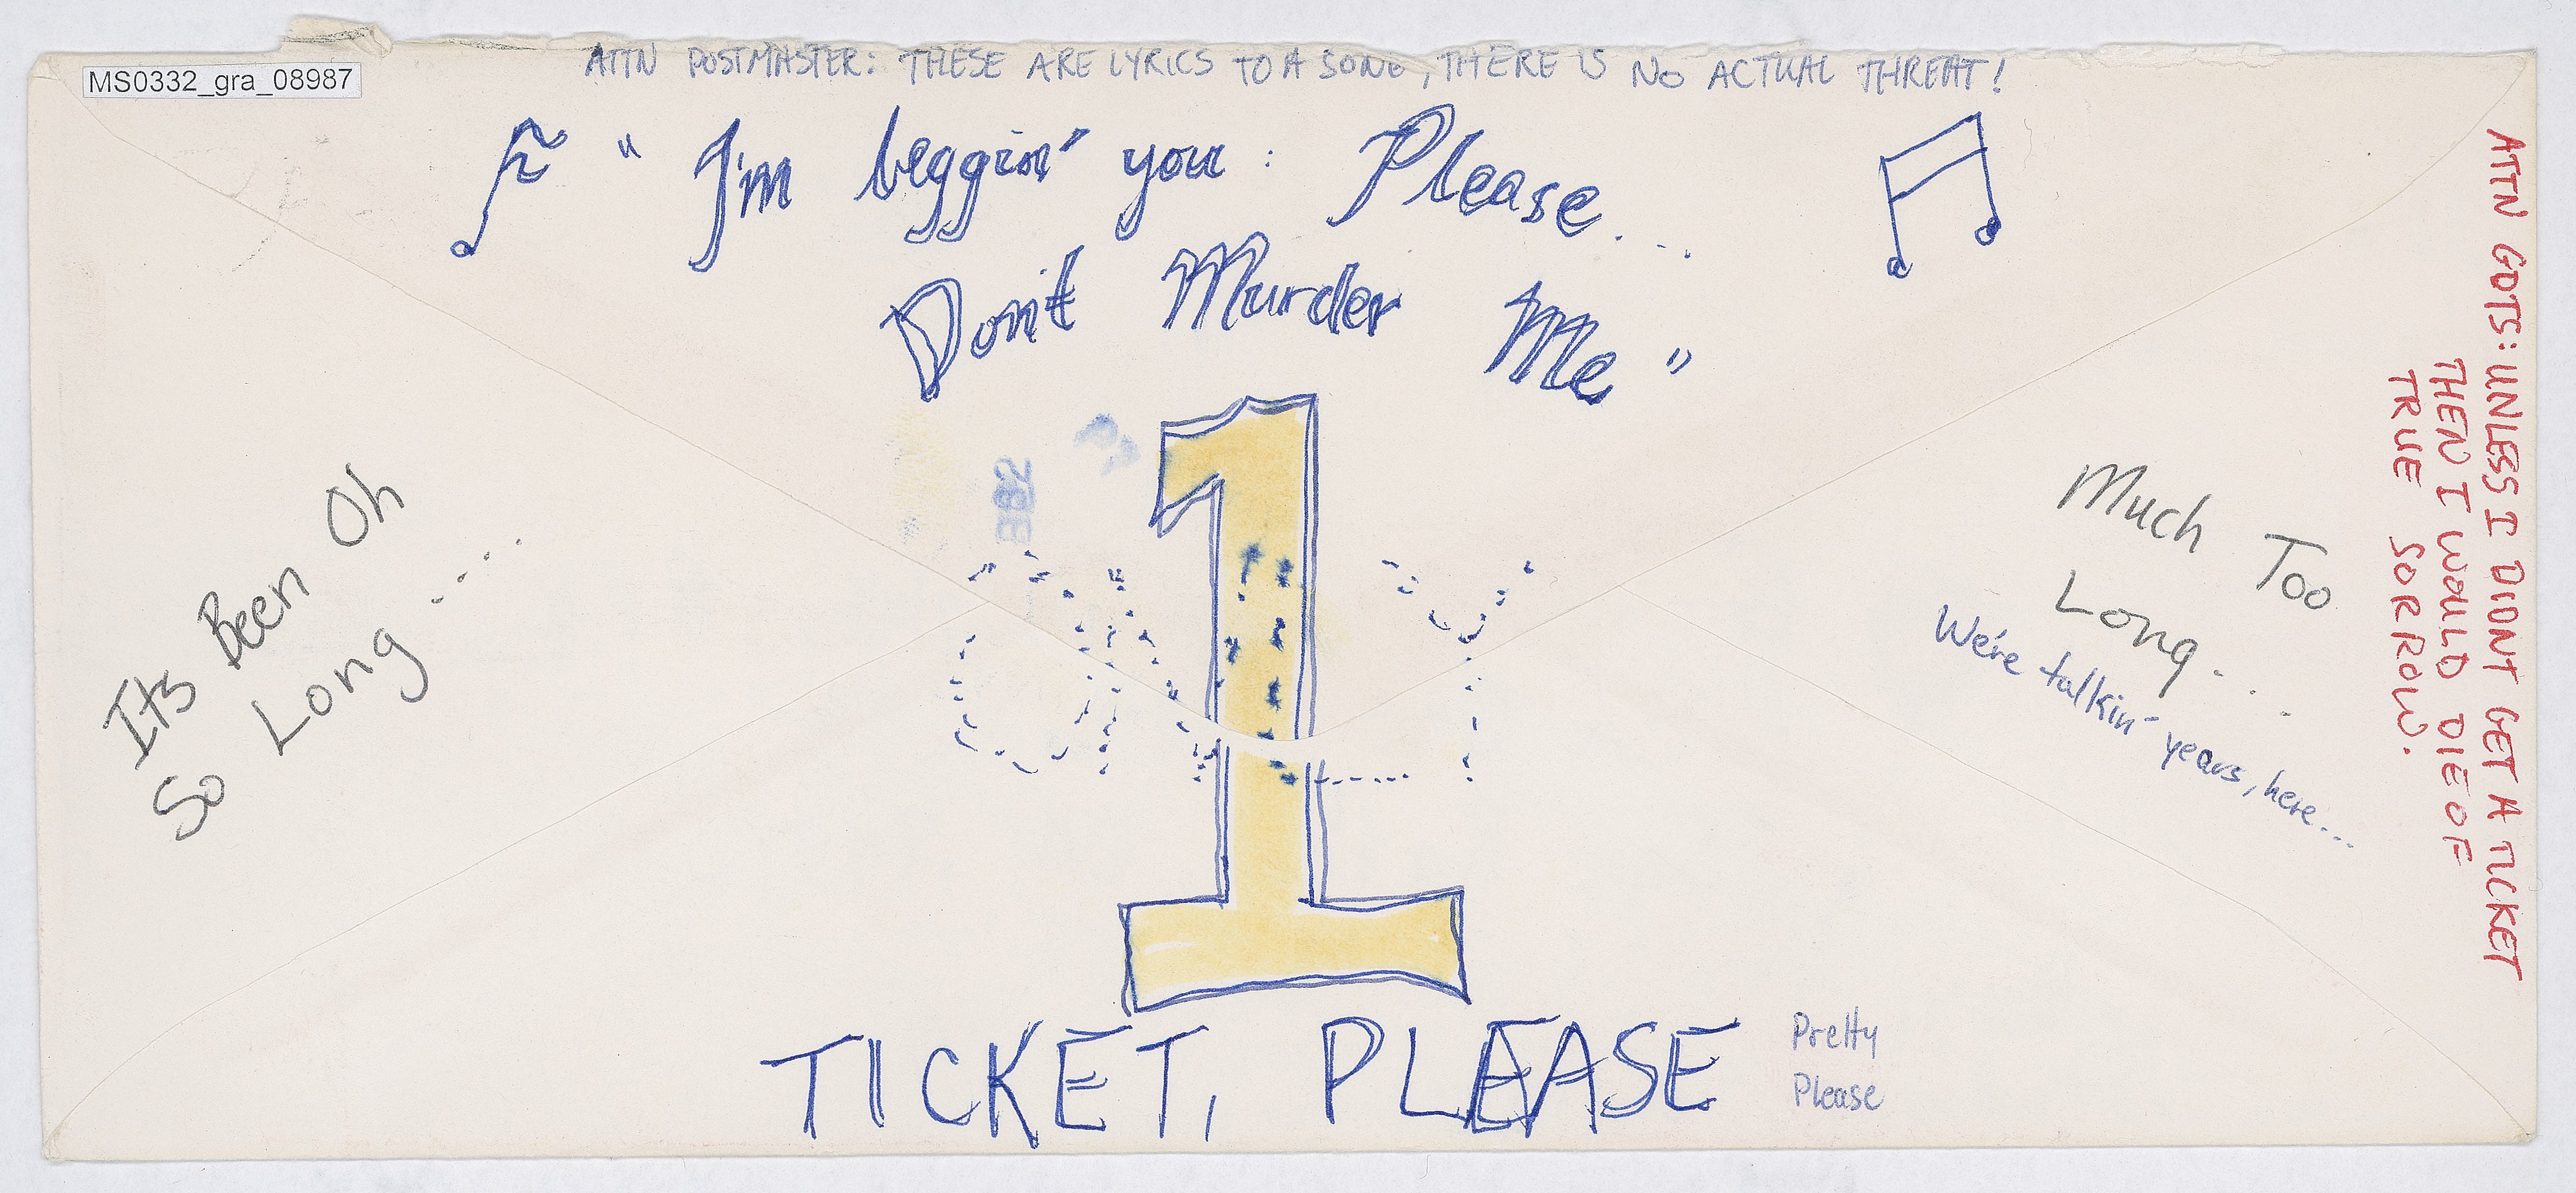 ATTN POSTMASTER: THESE ARE LYRICS TO A SONG, THERE IS NO ACTUAL THREAT!
MS0332_gra_08987
" I'm beggin' you : Please...
Don't Murder Me "
Its Been Oh
So Long....
1
ONLY
Much Too
Long...
We're talkin' years, here...
ATTN GDTS: UNLESS I DIDNT GET A TICKET
THEN I WOULD DIE OF
TRUE SORROW.
TICKET, PLEASE
Pretty
Please